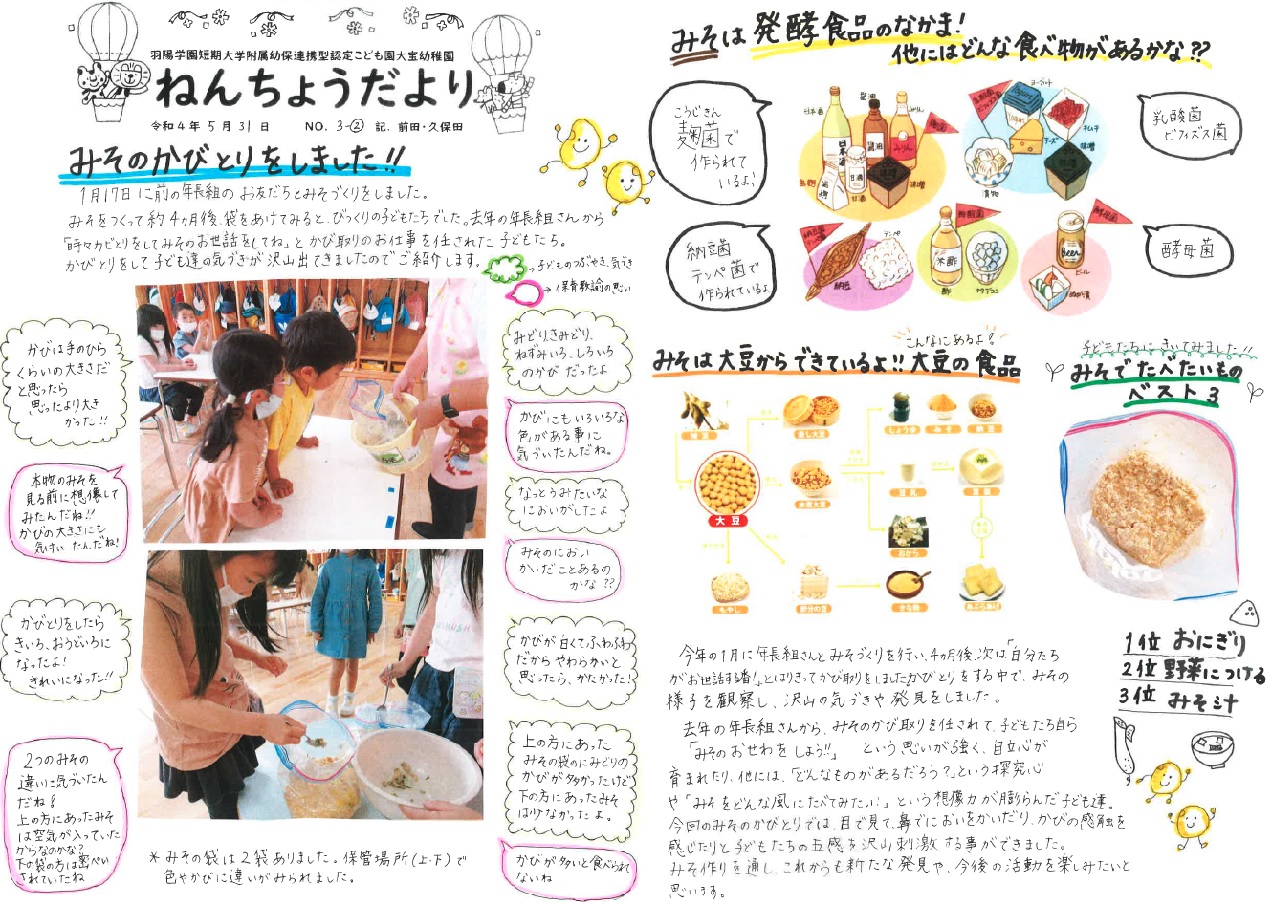 羽陽学園短期大学附属幼保連携型認定こども園大宝幼稚園
ねんちょうだより
令和4年5月31日 NO. 3-② 記. 前田・久保田
みそのかびとりをしました!!
1月17日に前の年長組のお友だちとみそづくりをしました。
みそをつくって約4ヵ月後、袋をあけてみると、びっくりの子どもたちでした。去年の年長組さんから
「時々カビとりをしてみそのお世話をしてね」とかび取りのお仕事を任された子どもたち。
かびとりをして子ども達の気づきが沢山出てきましたのでご紹介します。
→子どものつぶやき、気づき
→保育教諭の思い
かびは手のひら
くらいの大きさだ
と思ったら
思ったより大き
かった!!
本物のみそを
見る前に想像して
みたんだね!!
かびの大きさに
たんだね!
かびとりをしたら
きいろ、おうどいろに
なったよ!
きれいになった!!
2つのみその
違いに気づいたん
だね!
上の方にあったみそ
は空気が入っていた
からなのかな?
下の袋の方は密ぺい
されていたね
みどり、きみどり、
ねずみいろ、しろいろ
のかびだったよ
かびにもいろいろな
色がある事に
気づいたんだね。
なっとうみたいな
においがしたよ
みそのにおい
かいだことあるの
かな??
かびが白くてふわふわ
だからやわらかいと
思ったら、かたかった!
上の方にあった
みその袋のにみどりの
かびが多かったけど
下の方にあったみそ
は少なかったよ。
かびが多いと食べられ
ないね
*みその袋は2袋ありました。保管場所(上・下)で
色やかびに違いがみられました。
みそは発酵食品のなかま!
他にはどんな食べ物があるかな??
こうじきん
麹菌で
作られて
いるよ!
日本酒
醤油
みりん
甘酒
味噌
ヨーグルト
キムチ
チーズ
味噌
漬物
乳酸菌
ビフィズス菌
納豆菌
テンペ菌で
作られているよ
納豆
テンペ
米酢
酢
ナタデココ
Beer
ビール
ぬか漬
酵母菌
こんなにあるよ?
みそは大豆からできているよ!!大豆の食品
枝豆
蒸し大豆
しょうゆ
みそ
納豆
大豆
水煮大豆
豆乳
豆腐
おから
もやし
きな粉
あぶらあげ
子どもたちにきいてみました!!
みそでたべたいもの
ベスト3
1位 おにぎり
2位 野菜につける
3位 みそ汁
今年の1月に年長組さんとみそづくりを行い、4ヵ月後、次は「自分たち
がお世話する番!」とはりきってかび取りをしましたかびとりをする中で、みその
様子を観察し、沢山の気づきや発見をしました。
去年の年長組さんから、みそのかび取りを任されて、子どもたち自ら
「みそのおせわをしよう!!」 という思いが強く、自立心が
育まれたり、他には、「どんなものがあるだろう?」という探究心
や「みそをどんな風にたべてみたい」という想像力が膨らんだ子ども達。
今回のみそのかびとりでは、目で見て、鼻でにおいをかいだり、かびの感触を
感じたりと子どもたちの五感を沢山刺激する事ができました。
みそ作りを通し、これからも新たな発見や、今後の活動を楽しみたいと
思います。